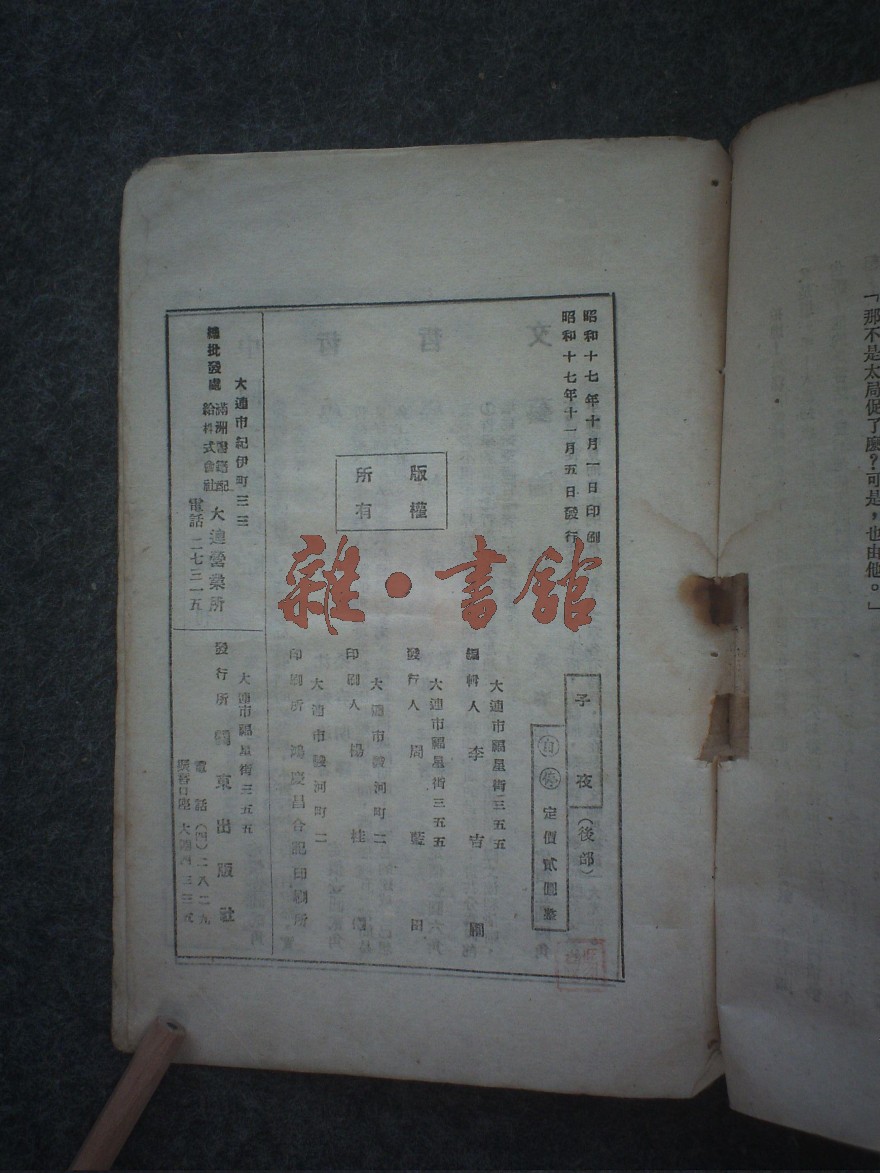 「那不是太局促了麽？可是，也由他。」
昭和十七年十月一日印刷
昭和十七年十一月五日發行
子夜（後部）
定價貳圓整
版權所有
大連市福星街三五五
編輯人 李吉
大連市福星街三五五
發行人 周藍田
大連市陵河町二
印刷人 楊桂
大連市陵河町二
印刷所 鴻慶昌合記印刷所
大連市紀伊町三三
總批發處 滿洲書籍配給株式會社 大連營業所
電話 二七三一五
大連市福星街三五五
發行所 關東出版社
電話（四）二八二九
振替口座 大連
雜·書館